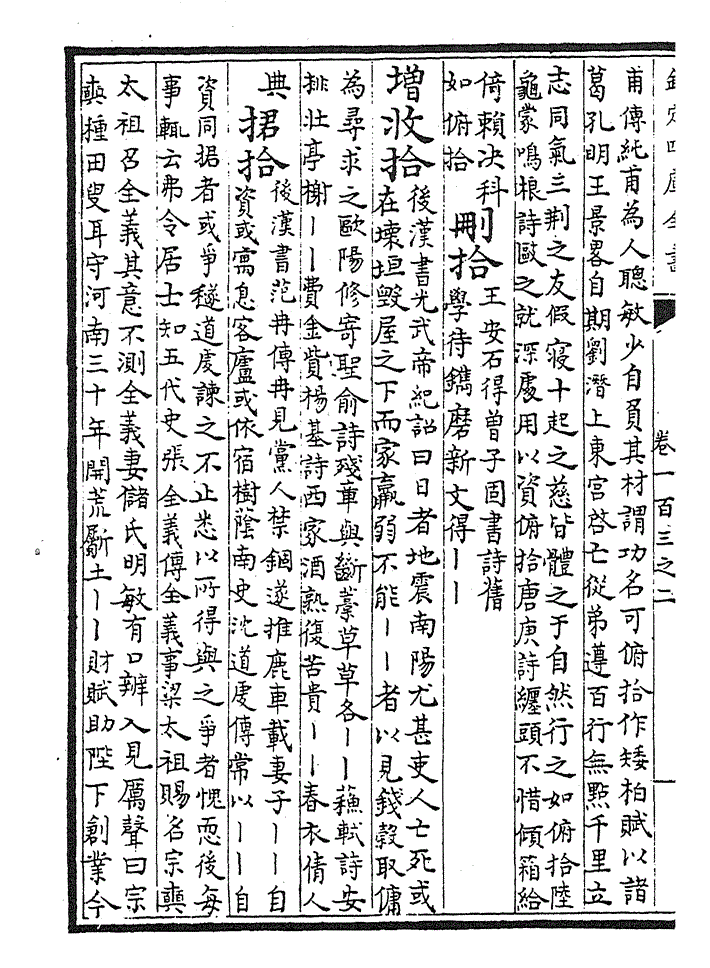 欽定四庫全書
卷一百三之二
甫傳純甫為人聰敏少自負其材謂功名可俯拾作矮柏賦以諸
葛孔明王景畧自期劉潛上東宮啓亡從弟遵百行無點千里立
志同氣三荆之友假寢十起之慈皆體之于自然行之如俯拾陸
龜蒙鳴桹詩敺之就深處用以資俯拾唐庚詩纏頭不惜傾箱給
倚賴決科
如俯拾
刪拾
王安石得曾子固書詩舊
學待鐫磨新文得丨丨
增收拾
後漢書光武帝紀詔曰日者地震南陽尤甚吏人亡死或
在壊垣毀屋之下而家羸弱不能丨丨者以見錢榖取傭
為尋求之歐陽修寄聖俞詩殘章與斷藁草草各丨丨蘓軾詩安
排壯亭榭丨丨費金貲楊基詩西家酒熟復苦貴丨丨春衣倩人
典
捃拾
後漢書范冉傳冉見黨人禁錮遂推鹿車載妻子丨丨自
資或寓息客廬或依宿樹蔭南史沈道虔傳常以丨丨自
資同捃者或爭穟道虔諫之不止悉以所得與之爭者愧恧後每
事輒云弗令居士知五代史張全義傳全義事梁太祖賜名宗奭
太祖召全義其意不測全義妻儲氏明敏有口辨入見厲聲曰宗
奭種田叟耳守河南三十年開荒斸土丨丨財賦助陛下創業今